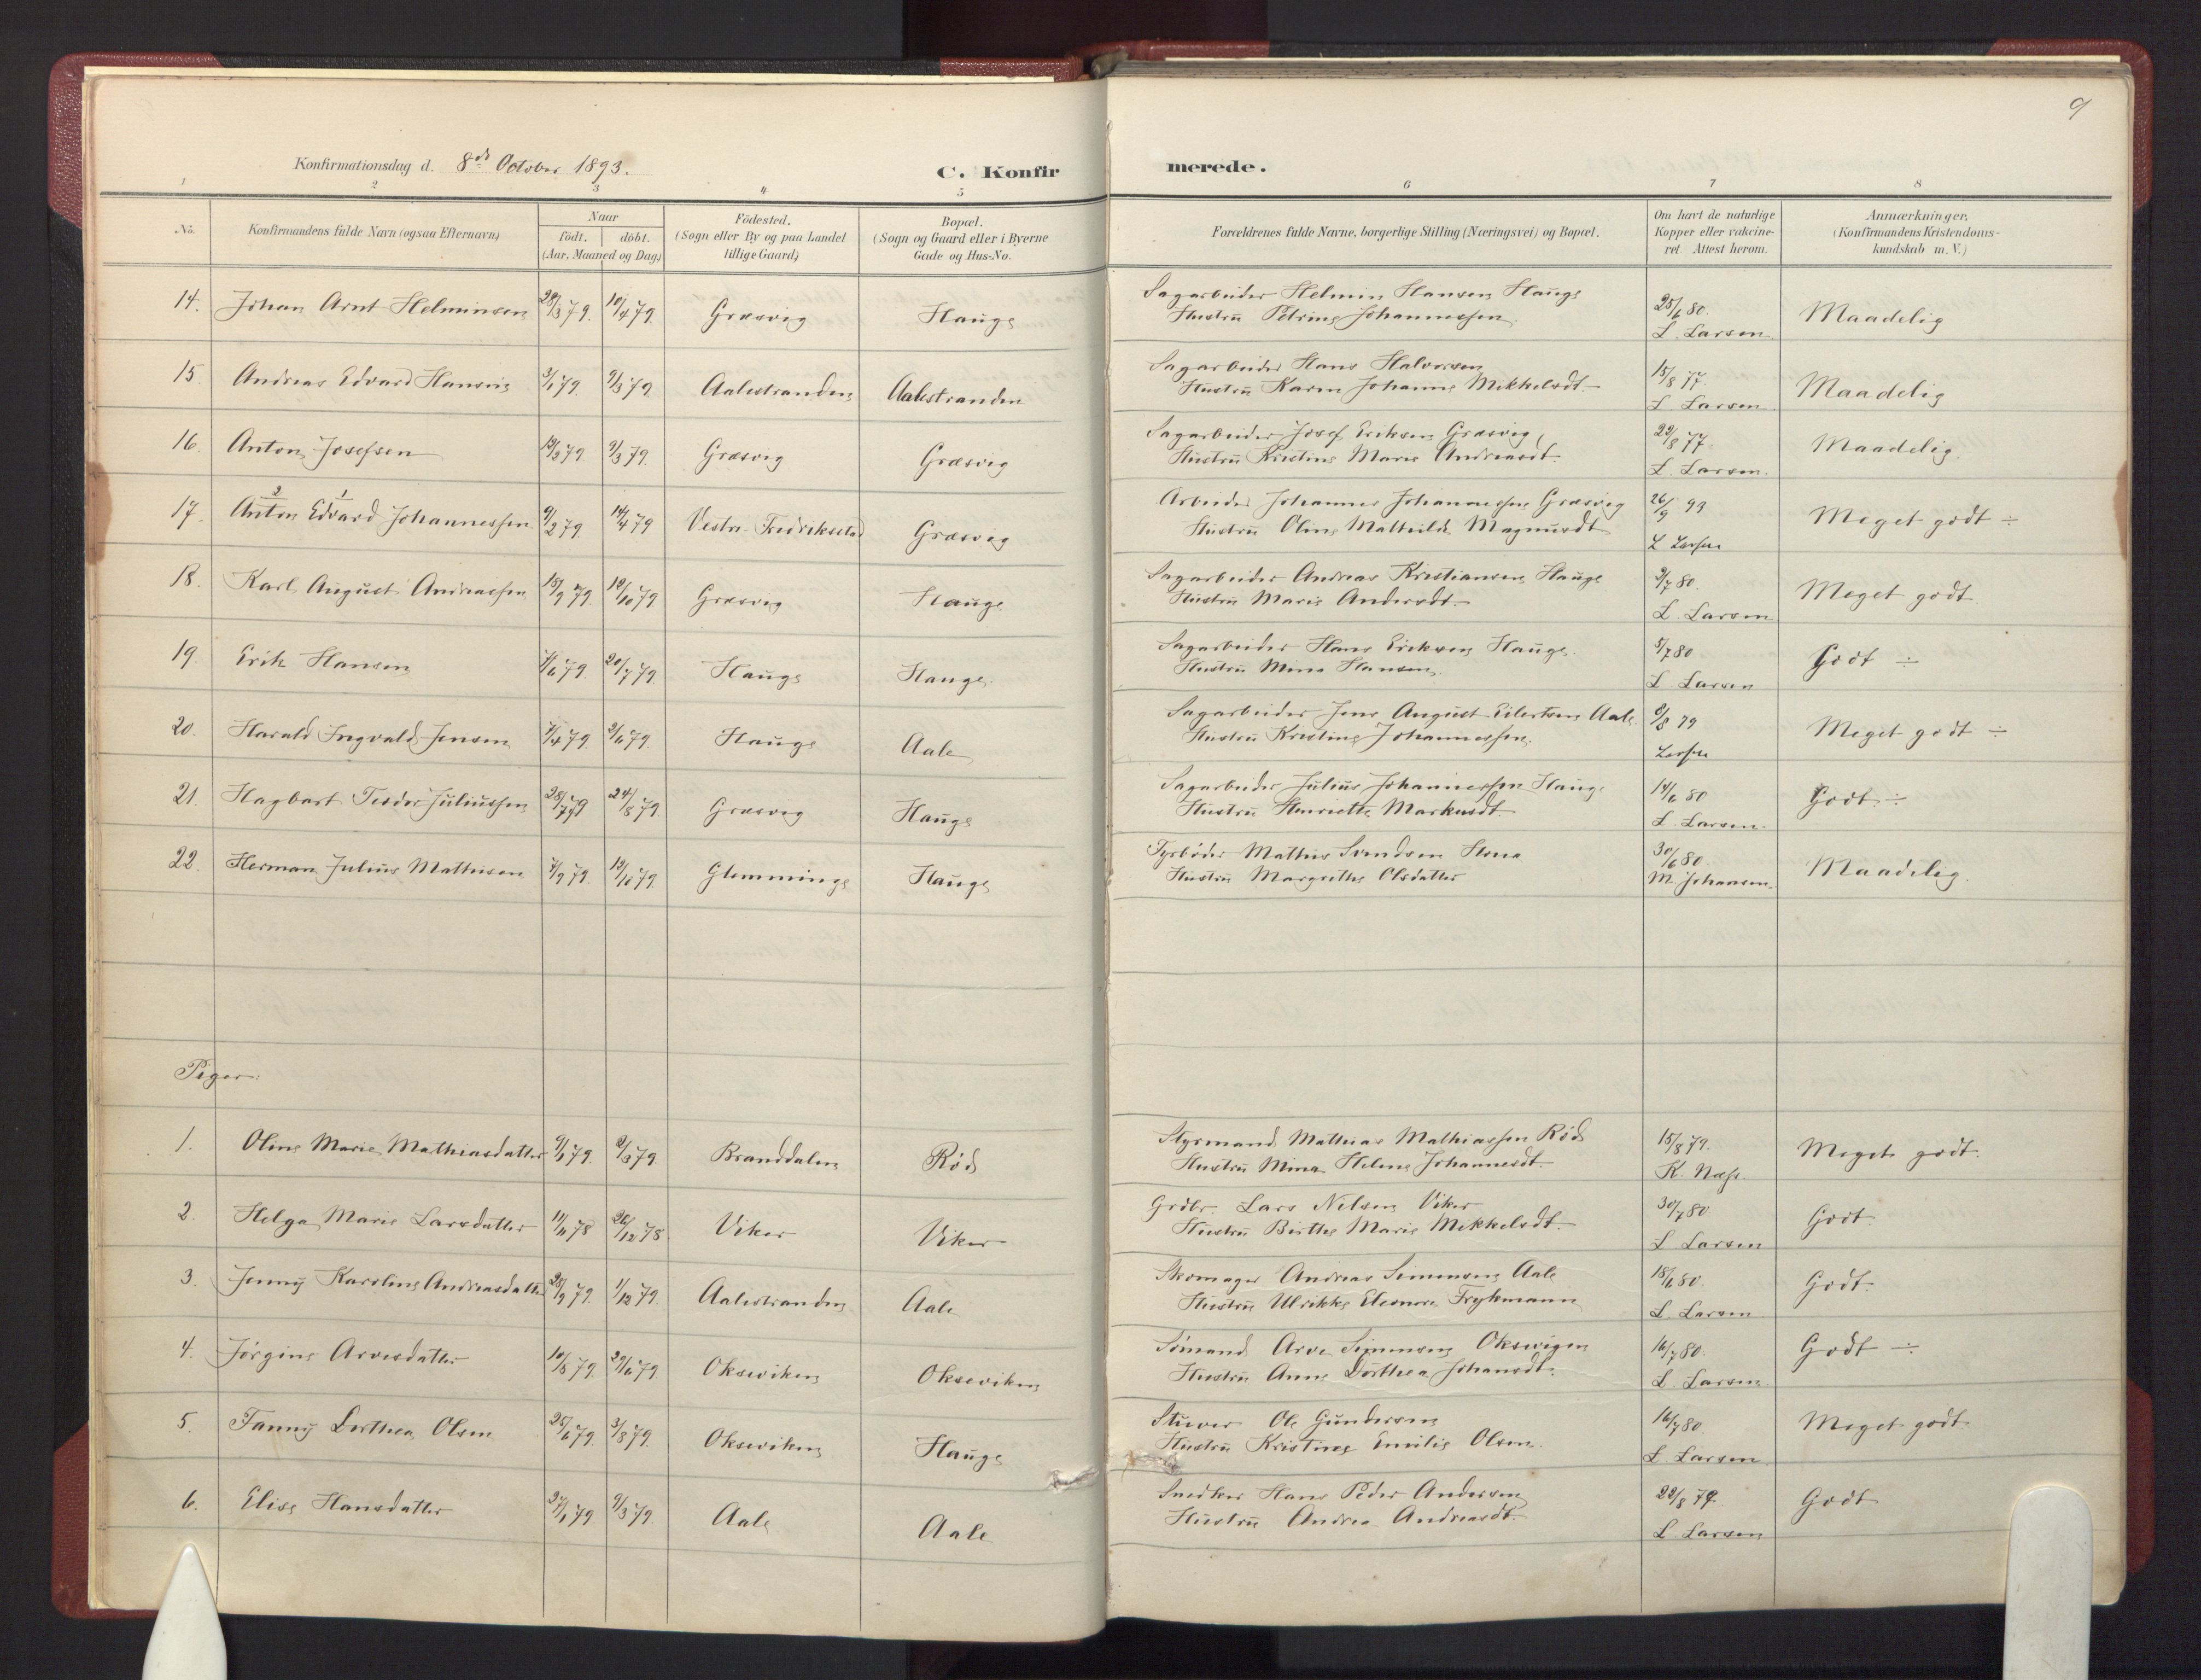 9
Konfirmationsdag d. 8de October 1893.
C. Konfirmerede.
1 2 3 4 5 6 7 8
No.
Konfirmandens fulde Navn (ogsaa Efternavn)
Naar
födt. döbt.
(Aar, Maaned og Dag)
Födested.
(Sogn eller By og paa Landet
tillige Gaard)
Bopæl.
(Sogn og Gaard eller i Byerne
Gade og Hus-No.
Forældrenes fulde Navne, borgerlige Stilling (Næringsvei) og Bopæl.
Om havt de naturlige
Kopper eller vakcine-
ret. Attest herom.
Anmærkninger.
(Konfirmandens Kristendoms-
kundskab m. V.)
14. Johan Arnt Helminsen 28/3 79. 10/4 79. Græsvig Hauge Sagarbeider Helmin Hansen Hauge 25/6 80. Maadelig
Hustru Petrine Johannessen. L. Larsen
15. Andreas Edvard Hansen 3/1 79. 9/3 79. Aalestranden Aalestranden Sagarbeider Hans Halvorsen 15/8 77. Maadelig
Hustru Karen Johanne Mikkelsdt. L. Larsen
16. Anton Josefsen 9/3 79. Græsvig Græsvig Sagarbeider Josef Eriksen Græsvig, 22/8 77. Maadelig.
Hustru Kristine Marie Andreasdt. L. Larsen.
2 1
17. Anton Edvard Johannessen 9/2 79. 14/4 79 Vestre Fredrikstad Græsvig Arbeider Johannes Johannessen Græsvig 26/9 93 Meget godt ÷
Hustru Oline Mathilde Magnusdt. L Larsen
18. Karl August Andreassen 18/9 79. 12/10 79 Græsvig Hauge Sagarbeider Andreas Kristiansen Hauge 2/7 80. Meget godt.
Hustru Marie Andersdt. L. Larsen
19. Erik Hansen 20/7 79. Hauge Hauge. Sagarbeider Hans Eriksen Hauge. 5/7 80 Godt ÷
Hustru Mina Hansen. L. Larsen
20. Harald Ingvald Jensen 2/6 79. Hauge Aale Sagarbeider Jens August Eilertsen Aale 8/8 79 Meget godt ÷
Hustru Kristine Johannessen. Larsen
21. Hagbart Teodor Juliussen 28/7 79 24/8 79. Græsvig Hauge Sagarbeider Julius Johannessen Hauge 14/6 80 Godt ÷
Hustru Henriette Markusdt. L. Larsen.
22. Herman Julius Mathisen 7/9 79. 12/10 79. Glemminge Hauge Fyrbøder Mathis Svendsen 30/6 80. Maadelig.
Hustru Margrethe Olsdatter M. Johansen.
Piger:
1. Oline Marie Mathiasdatter 9/1 79. 2/3 79 Branddalen Rød Styrmand Mathias Mathiassen Rød 15/8 79. Meget godt.
Hustru Mina Helene Johannesdt. K. Næss.
2. Helga Marie Larsdatter 11/11 78 26/12 78. Viker Viker Grdbr. Lars Nilsen Viker 30/7 80 Godt.
Hustru Birthe Marie Mikkelsdt. L Larsen
3. Jenny Karoline Andreasdatter 28/9 79. 1/12 79. Aalestranden Aale Skomager Andreas Simensen Aale 18/6 80. Godt.
Hustru Ulrikke Eleonore Frykmann L. Larsen
4. Jörgine Arvesdatter 29/6 79. Okseviken Okseviken Sömand Arve Simensen Oksevigen 16/7 80. Godt ÷
Hustru Anne Dorthea Johansdt. L. Larsen
5. Fanny Dorthea Olsen 25/6 79. 3/8 79. Okseviken Hauge Stuver Ole Gundersen 16/7 80. Meget godt
Hustru Kristine Emilie Olsen. L Larsen
6. Elise Hansdatter 27/1 79. 9/3 79. Aale Aale Snedker Hans Peder Andersen 22/8 79. Godt
Hustru Andrea Andreasdt. L. Larsen